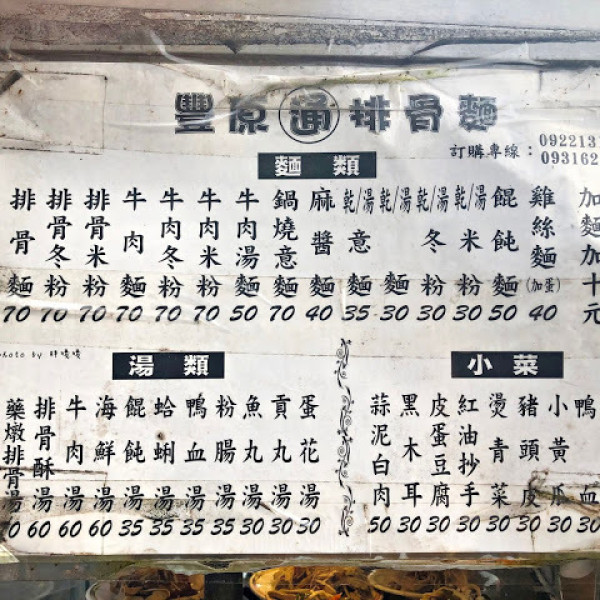 豐原通排骨麵
訂購專線：
092213
093162
麵類
排骨麵 70
排骨冬粉 70
排骨米粉 70
牛肉麵 70
牛肉冬粉 70
牛肉米粉 70
牛肉湯麵 50
鍋燒意麵 70
麻醬麵 40
乾/湯意麵 35
乾/湯麵 30
乾/湯冬粉 30
乾/湯米粉 30
餛飩麵 50
雞絲麵(加蛋) 40
加麵加十元
湯類
藥燉排骨湯 0
排骨酥湯 60
牛肉湯 60
海鮮湯 60
餛飩湯 35
蛤蜊湯 35
鴨血湯 35
粉腸湯 35
魚丸湯 30
貢丸湯 30
蛋花湯 30
小菜
蒜泥白肉 50
黑木耳 30
皮蛋豆腐 30
紅油抄手 30
燙青菜 30
豬頭皮 30
小黃瓜 30
鴨血 30
photo by